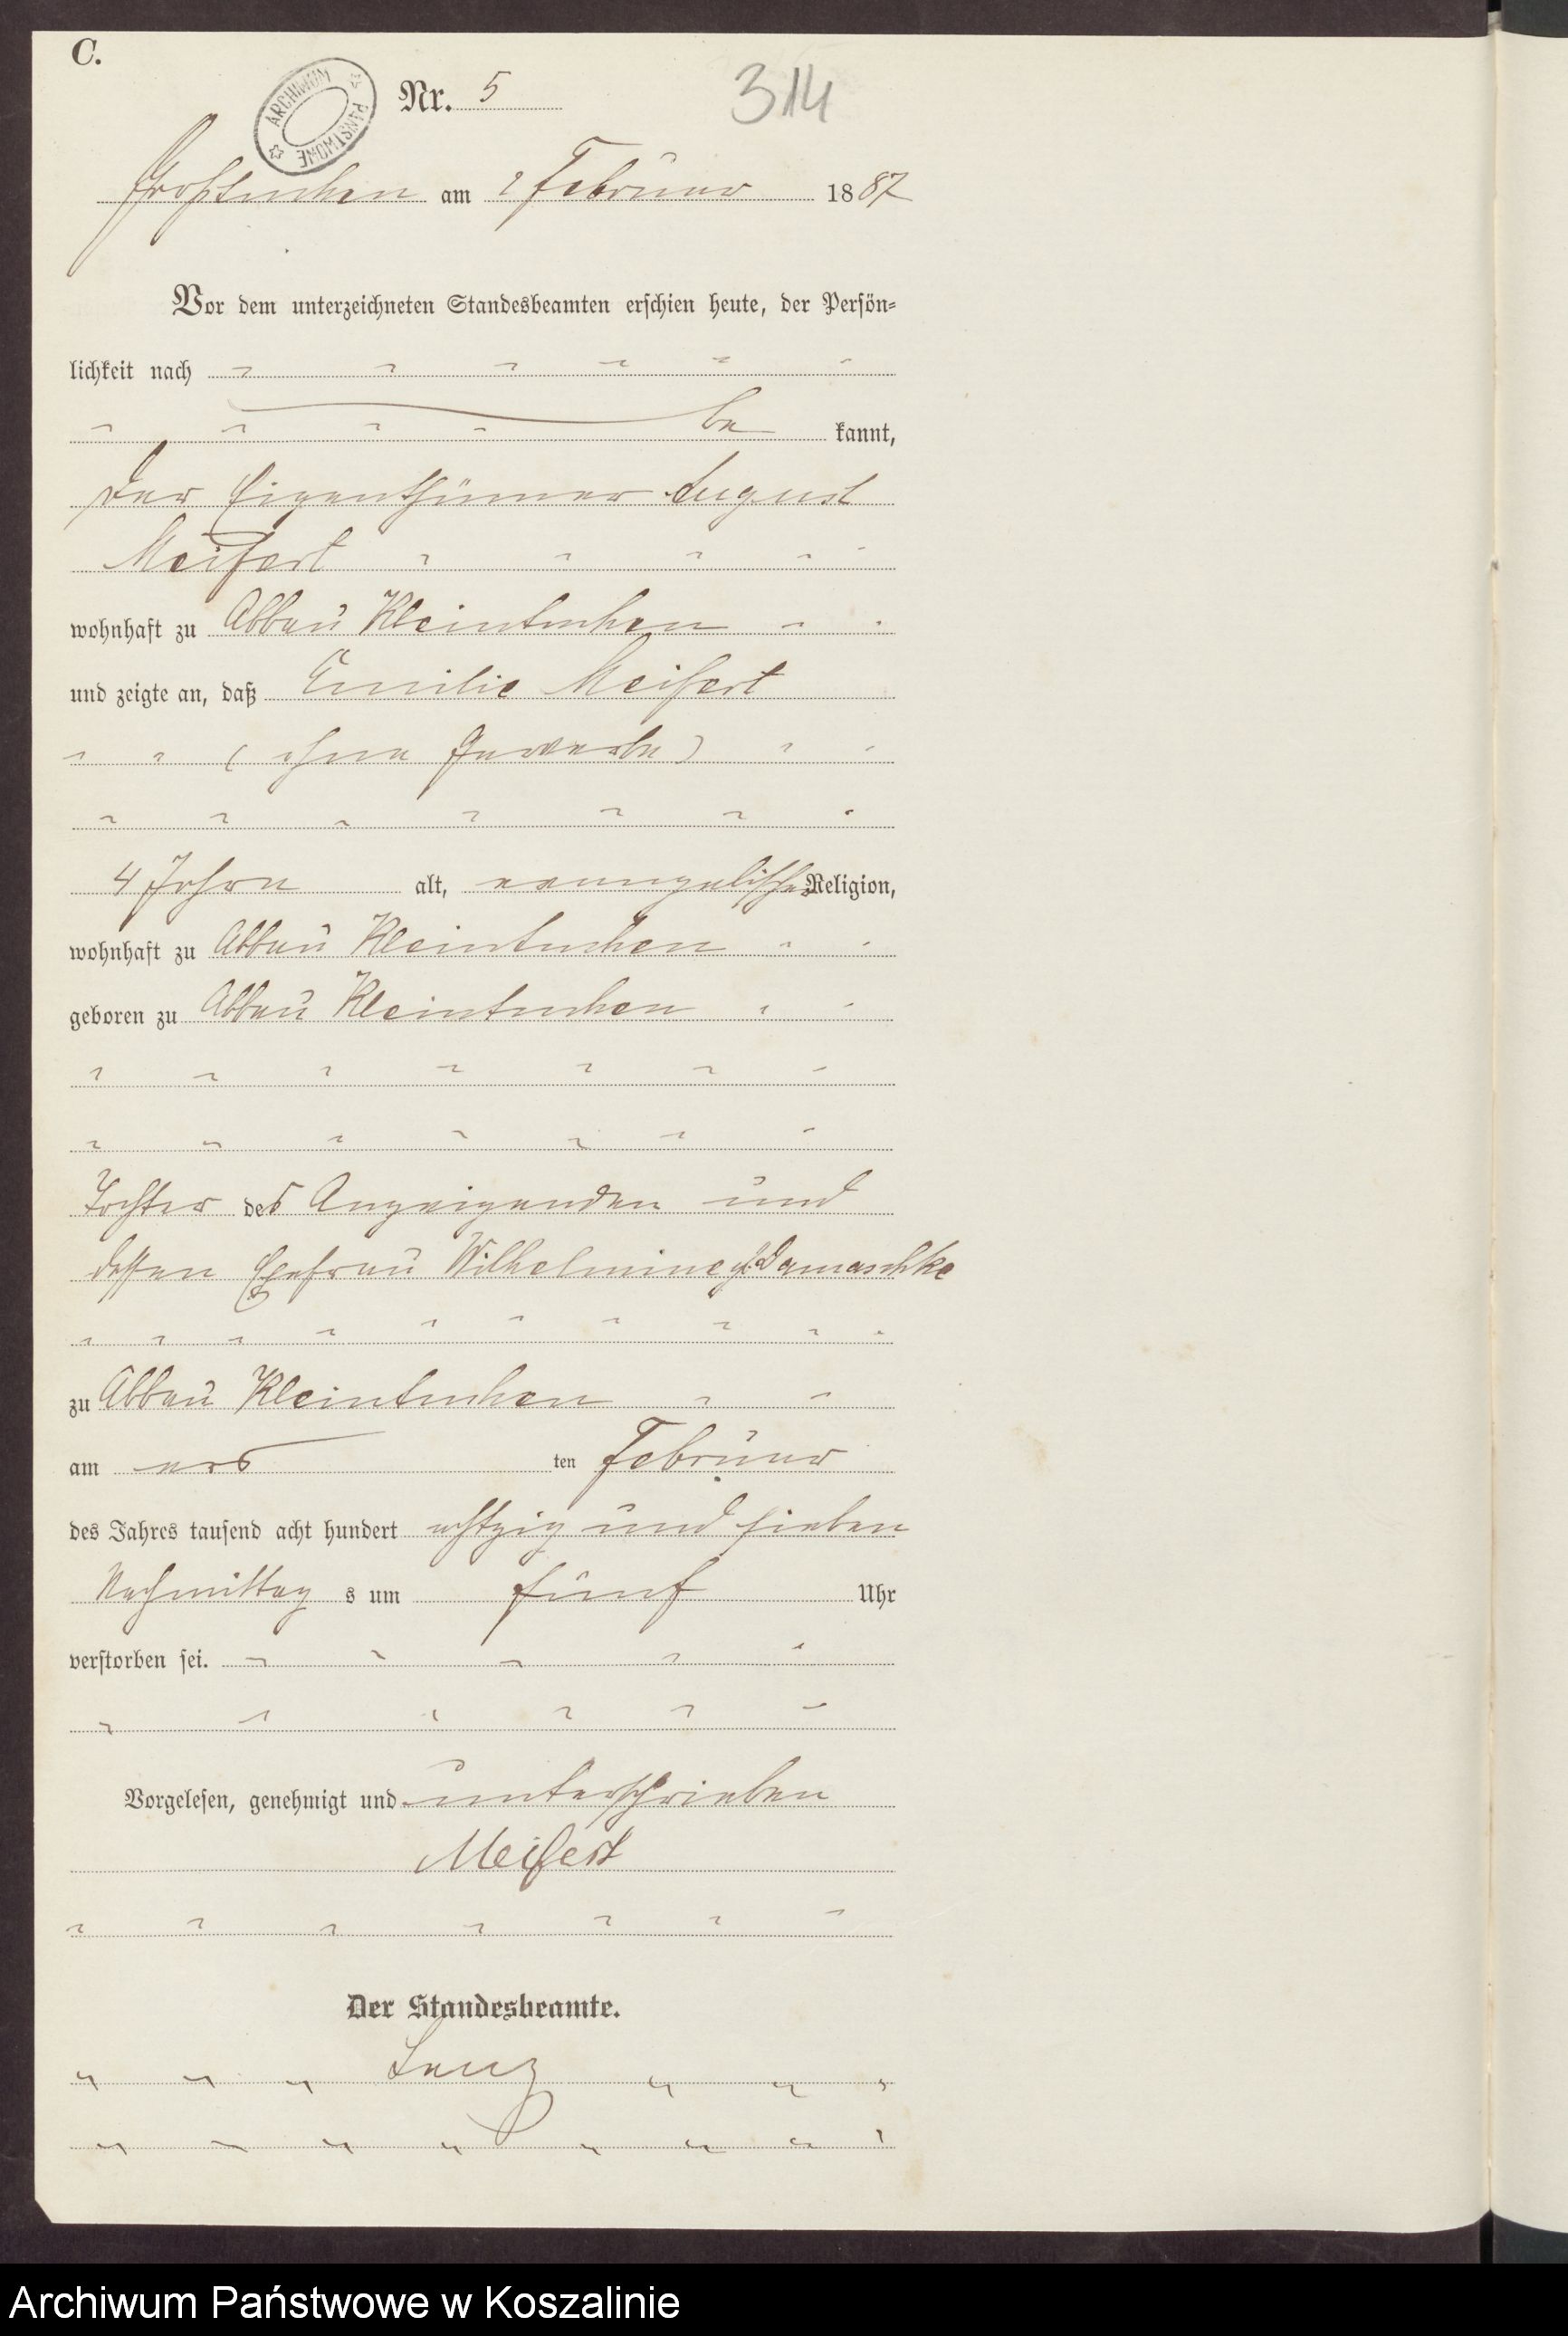 C.
ARCHIWUM PAŃSTWOWE
Nr. 5
314
Großtuchen am 2 Februar 1887
Vor dem unterzeichneten Standesbeamten erschien heute, der Persön=
lichkeit nach
be kannt,
der Eigenthümer August
Meifert
wohnhaft zu Abbau Kleintuchen
und zeigte an, daß Emilie Meifert
(ohne Gewerbe)
4 Jahre alt, evangelischer Religion,
wohnhaft zu Abbau Kleintuchen
geboren zu Abbau Kleintuchen
Tochter des Anzeigenden und
dessen Ehefrau Wilhelmine geb. Damaschke
zu Abbau Kleintuchen
am ers ten Februar
des Jahres tausend acht hundert achtzig und sieben
Nachmittag s um fünf Uhr
verstorben sei.
Vorgelesen, genehmigt und unterschrieben
Meifert
Der Standesbeamte.
Lenz
Archiwum Państwowe w Koszalinie